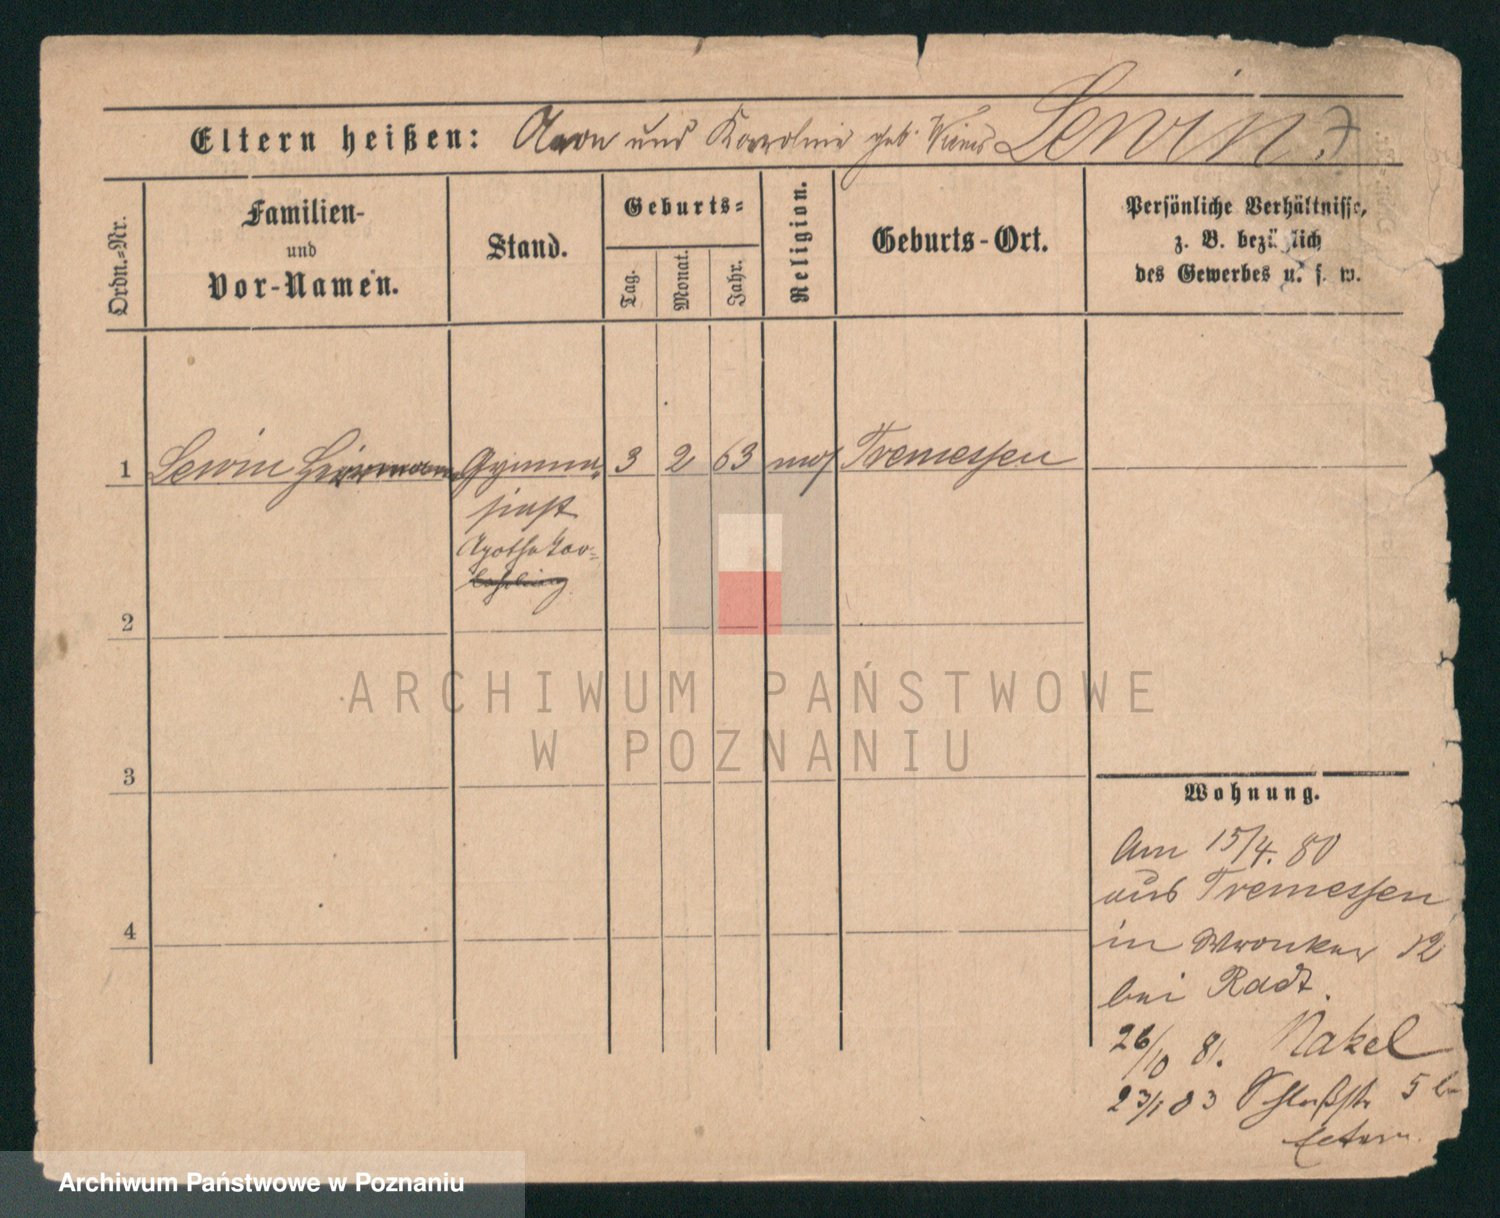 Eltern heißen: Aron und Karoline geb. Lewin
Ordn.-Nr.
Familien-
und
Vor-Namen.
Stand.
Geburts-
Tag.
Monat.
Jahr.
Religion.
Geburts-Ort.
Persönliche Verhältnisse,
z. B. bezüglich
des Gewerbes u. s. w.
1 Lewin Herrmann Gymna- 3 2 63 mos Tremessen
siast
Apotheker-
Lehrling
2
3
4
Wohnung.
Am 15/4. 80
aus Tremessen
in Wronker 12
bei Radt.
26/10 81. Nakel
23/1 83 Schloßstr 5 b
ARCHIWUM PAŃSTWOWE
W POZNANIU
Archiwum Państwowe w Poznaniu